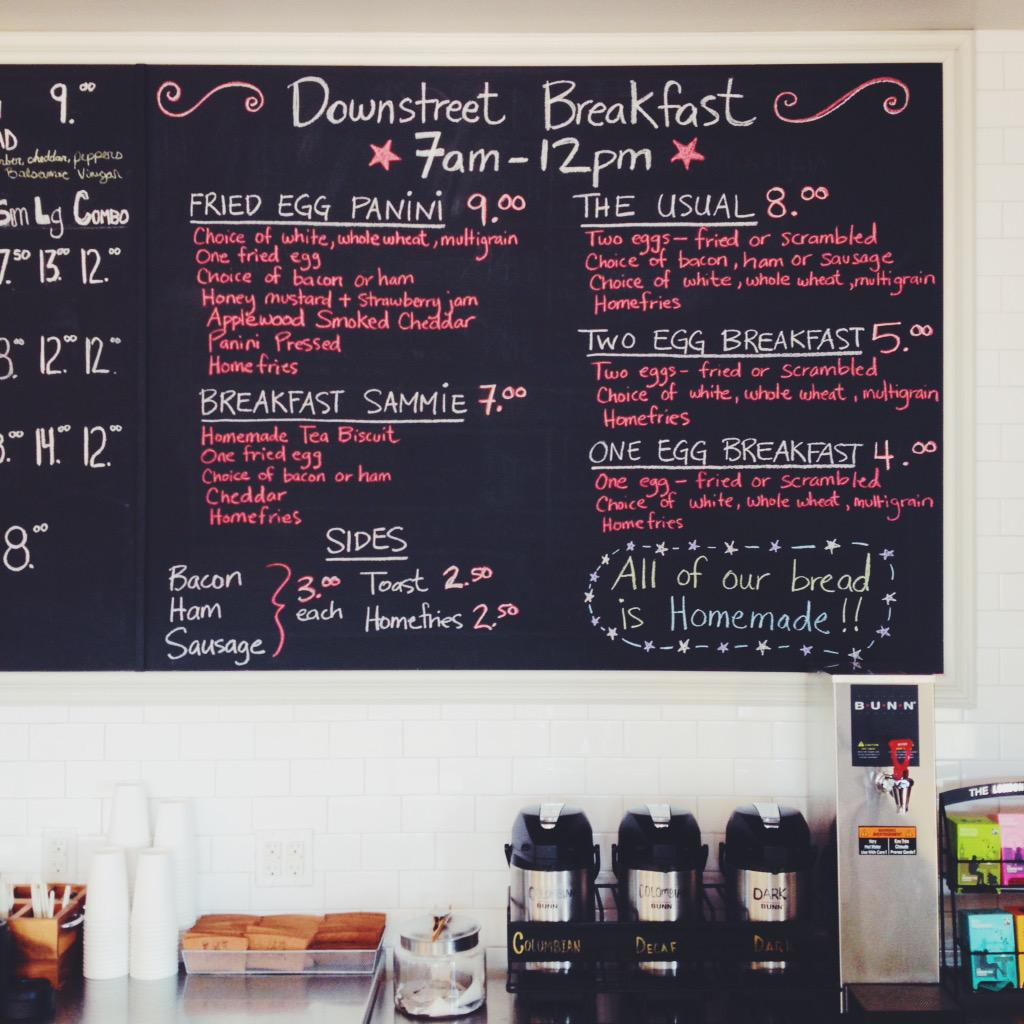 9.00
cheddar, peppers
Balsamic Vinegar
Sm Lg Combo
7.50 13.00 12.00
8.00 12.00 12.00
14.00 12.00
8.00
Downstreet Breakfast
7am-12pm
FRIED EGG PANINI 9.00
Choice of white, whole wheat, multigrain
One fried egg
Choice of bacon or ham
Honey mustard + strawberry jam
Applewood Smoked Cheddar
Panini Pressed
Homefries
BREAKFAST SAMMIE 7.00
Homemade Tea Biscuit
One fried egg
Choice of bacon or ham
Cheddar
Homefries
SIDES
Bacon
Ham
Sausage
3.00
each
Toast 2.50
Homefries 2.50
THE USUAL 8.00
Two eggs - fried or scrambled
Choice of bacon, ham or sausage
Choice of white, whole wheat, multigrain
Homefries
TWO EGG BREAKFAST 5.00
Two eggs - fried or scrambled
Choice of white, whole wheat, multigrain
Homefries
ONE EGG BREAKFAST 4.00
One egg - fried or scrambled
Choice of white, whole wheat, multigrain
Homefries
All of our bread
is Homemade!!
BUNN
CAUTION
THE LONDON
COLOMBIA
BUNN
COLOMBIA
BUNN
DARK
BUNN
COLUMBIAN
DECAF
DARK